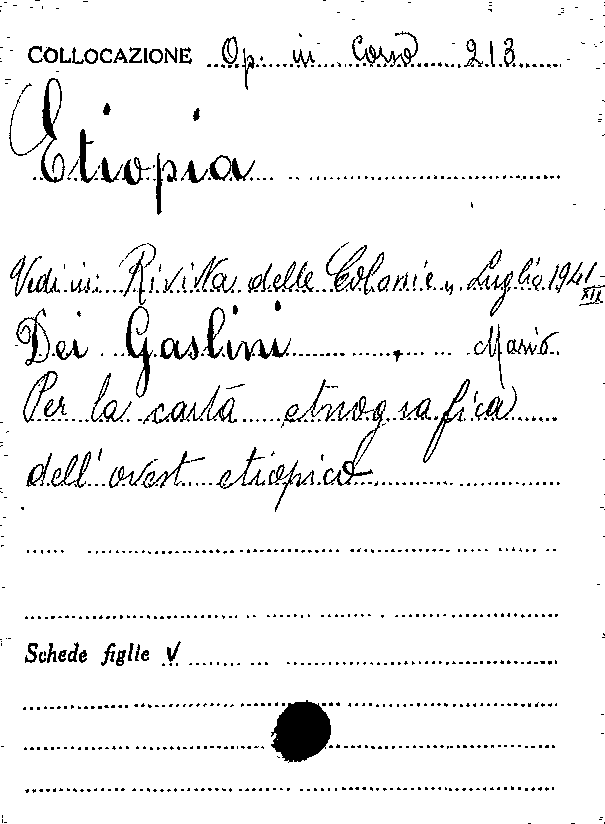 COLLOCAZIONE Op. in Corso 213
Etiopia
Vedi in: Rivista delle Colonie „ Luglio 1941-XIX
Dei Gaslini , Mario
Per la carta etnografica
dell'ovest etiopico
Schede figlie V